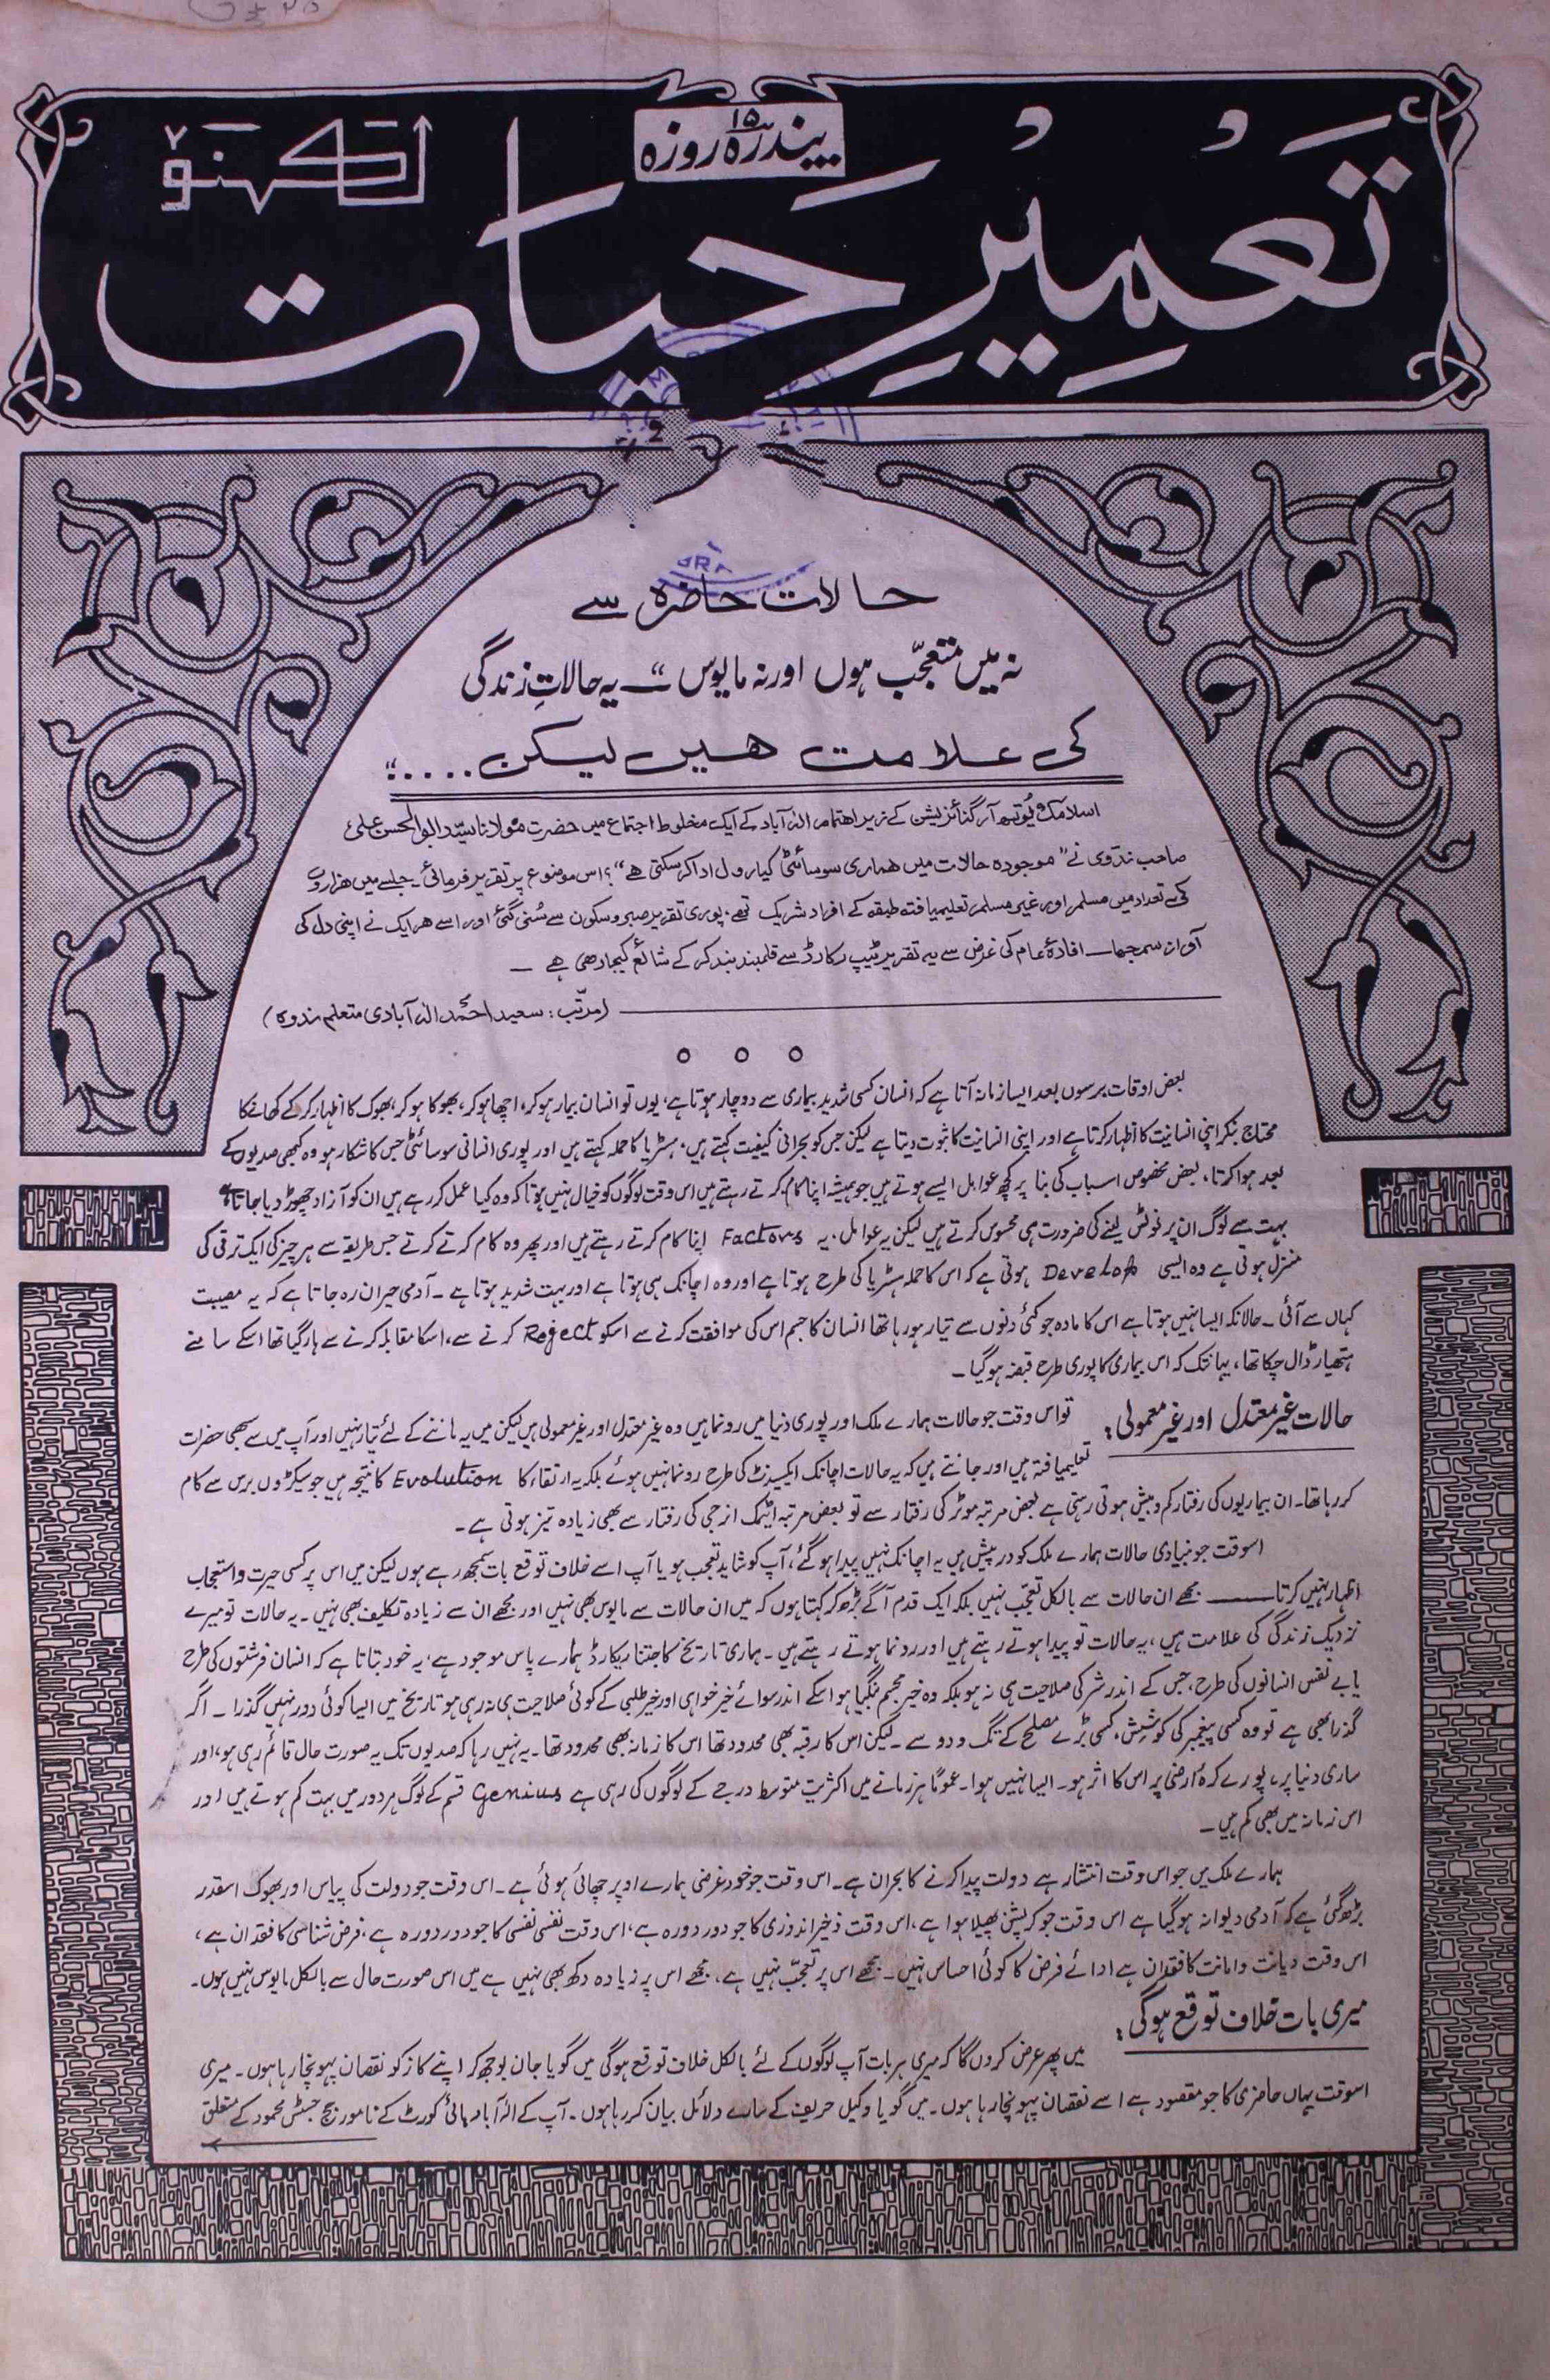 پندرہ ۱۵ روزہ
تعمیرِ حیات
لکھنؤ
حالات حاضرہ سے
نہ میں متعجّب ہوں اور نہ مایوس “— یہ حالاتِ زندگی
کی علامت ہیں لیکن....“
اسلامک یُوتھ آرگنائزیشن کے زیر اہتمام الٰہ آباد کے ایک مخلوط اجتماع میں حضرت مولانا سیّد ابوالحسن علی
صاحب ندوی نے ”موجودہ حالات میں ہماری سوسائٹی کیا رول ادا کرسکتی ہے“؟ اس موضوع پر تقریر فرمائی جلسے میں ہزاروں
کی تعداد میں مسلم اور غیر مسلم تعلیمیافتہ طبقہ کے افراد شریک تھے، پوری تقریر صبر و سکون سے سُنی گئی اور اسے ہر ایک نے اپنی دل کی
آواز سمجھا — افادۂ عام کی غرض سے یہ تقریر ٹیپ رکارڈ سے قلمبند کرکے شائع کیجارہی ہے —
(مرتّب: سعید احمد الٰہ آبادی متعلم ندوہ)
بعض اوقات برسوں بعد ایسا زمانہ آتا ہے کہ انسان کسی شدید بیماری سے دوچار ہوتا ہے، یوں تو انسان بیمار ہوکر، اچھا ہوکر، بھوکا ہوکر، بھوک کا اظہار کرکے کھانے کا
محتاج بنکر اپنی انسانیت کا اظہار کرتا ہے اور اپنی انسانیت کا ثبوت دیتا ہے لیکن جس کو بحرانی کیفیت کہتے ہیں، ہسٹریا کا حملہ کہتے ہیں اور پوری انسانی سوسائٹی جس کا شکار ہو وہ کبھی صدیوں کے
بعد ہوا کرتا، بعض مخصوص اسباب کی بنا پر کچھ عوامل ایسے ہوتے ہیں جو ہمیشہ اپنا کام کرتے رہتے ہیں اس وقت لوگوں کو خیال نہیں ہوتا کہ وہ کیا عمل کررہے ہیں ان کو آزاد چھوڑ دیا جاتا ہے
بہت سے لوگ ان پر نوٹس لینے کی ضرورت ہی محسوس کرتے ہیں لیکن یہ عوامل، یہ Factors اپنا کام کرتے رہتے ہیں اور پھر وہ کام کرتے کرتے جس طریقہ سے ہر چیز کی ایک ترقی کی
منزل ہوتی ہے وہ ایسی Develop ہوتی ہے کہ اس کا حملہ ہسٹریا کی طرح ہوتا ہے اور وہ اچانک ہی ہوتا ہے اور بہت شدید ہوتا ہے — آدمی حیران رہ جاتا ہے کہ یہ مصیبت
کہاں سے آئی — حالانکہ ایسا نہیں ہوتا ہے اس کا مادہ جو کئی دنوں سے تیار ہو رہا تھا انسان کا جسم اس کی موافقت کرنے سے اسکو Reject کرنے سے، اسکا مقابلہ کرنے سے ہار گیا تھا اسکے سامنے
ہتھیار ڈال چکا تھا، یہانتک کہ اس بیماری کا پوری طرح قبضہ ہوگیا —
حالات غیر معتدل اور غیر معمولی:
تو اس وقت جو حالات ہمارے ملک اور پوری دنیا میں رونما ہیں وہ غیر معتدل اور غیر معمولی ہیں لیکن میں یہ ماننے کے لئے تیار نہیں اور آپ میں سے سبھی حضرات
تعلیمیافتہ ہیں اور جانتے ہیں کہ یہ حالات اچانک ایکسیڈنٹ کی طرح رونما نہیں ہوئے بلکہ یہ ارتقاء کا Evolution کا نتیجہ ہیں جو سیکڑوں برس سے کام
کر رہا تھا۔ ان بیماریوں کی رفتار کم و بیش ہوتی رہتی ہے بعض مرتبہ موٹر کی رفتار سے تو بعض مرتبہ ایٹمک انرجی کی رفتار سے بھی زیادہ تیز ہوتی ہے۔
اسوقت جو بنیادی حالات ہمارے ملک کو درپیش ہیں یہ اچانک نہیں پیدا ہوگئے، آپ کو شاید تعجب ہو یا آپ اسے خلاف توقع بات سمجھ رہے ہوں لیکن میں اس پر کسی حیرت و استعجاب
اظہار نہیں کرتا —— مجھے ان حالات سے بالکل تعجّب نہیں بلکہ ایک قدم آگے بڑھ کر کہتا ہوں کہ میں ان حالات سے مایوس بھی نہیں اور مجھے ان سے زیادہ تکلیف بھی نہیں۔ یہ حالات تو میرے
نزدیک زندگی کی علامت ہیں، یہ حالات تو پیدا ہوتے رہتے ہیں اور رونما ہوتے رہتے ہیں۔ ہماری تاریخ کا جتنا ریکارڈ ہمارے پاس موجود ہے، یہ خود بتاتا ہے کہ انسان فرشتوں کی طرح
یا بے نفس انسانوں کی طرح، جس کے اندر شر کی صلاحیت ہی نہ ہو بلکہ وہ خیر مجسم بنگیا ہو اسکے اندر سوائے خیر خواہی اور خیر طلبی کے کوئی صلاحیت ہی نہ رہی ہو تاریخ میں ایسا کوئی دور نہیں گذرا — اگر
گذرا بھی ہے تو وہ کسی پیغمبر کی کوشش، کسی بڑے مصلح کے تگ و دو سے — لیکن اس کا رقبہ بھی محدود تھا اس کا زمانہ بھی محدود تھا۔ یہ نہیں رہا کہ صدیوں تک یہ صورت حال قائم رہی ہو، اور
ساری دنیا پر، پورے کرۂ ارضی پر اس کا اثر ہو۔ ایسا نہیں ہوا۔ عموماً ہر زمانے میں اکثریت متوسط درجے کے لوگوں کی رہی ہے Genius قسم کے لوگ ہر دور میں بہت کم ہوتے ہیں اور
اس زمانہ میں بھی کم ہیں —
ہمارے ملک میں جو اس وقت انتشار ہے دولت پیدا کرنے کا بحران ہے۔ اس وقت جو خود غرضی ہمارے اوپر چھائی ہوئی ہے۔ اس وقت جو دولت کی پیاس اور بھوک اسقدر
بڑھ گئی ہے کہ آدمی دیوانہ ہوگیا ہے اس وقت جو کرپشن پھیلا ہوا ہے، اس وقت ذخیر اندوزی کا جو دور دورہ ہے، اس وقت نفسی نفسی کا جو دور دورہ ہے، فرض شناسی کا فقدان ہے،
اس وقت دیانت و امانت کا فقدان ہے ادائے فرض کا کوئی احساس نہیں۔ مجھے اس پر تعجّب نہیں ہے، مجھے اس پر زیادہ دکھ بھی نہیں ہے میں اس صورت حال سے بالکل مایوس نہیں ہوں۔
میری بات خلاف توقع ہوگی:
میں پھر عرض کروں گا کہ میری ہر بات آپ لوگوں کے لئے بالکل خلاف توقع ہوگی میں گویا جان بوجھ کر اپنے کاز کو نقصان پہونچا رہا ہوں۔ میری
اسوقت یہاں حاضری کا جو مقصود ہے اسے نقصان پہونچا رہا ہوں۔ میں گویا وکیل حریف کے سارے دلائل بیان کر رہا ہوں۔ آپ کے الٰہ آباد ہائی کورٹ کے نامور جج جسٹس محمود کے متعلق